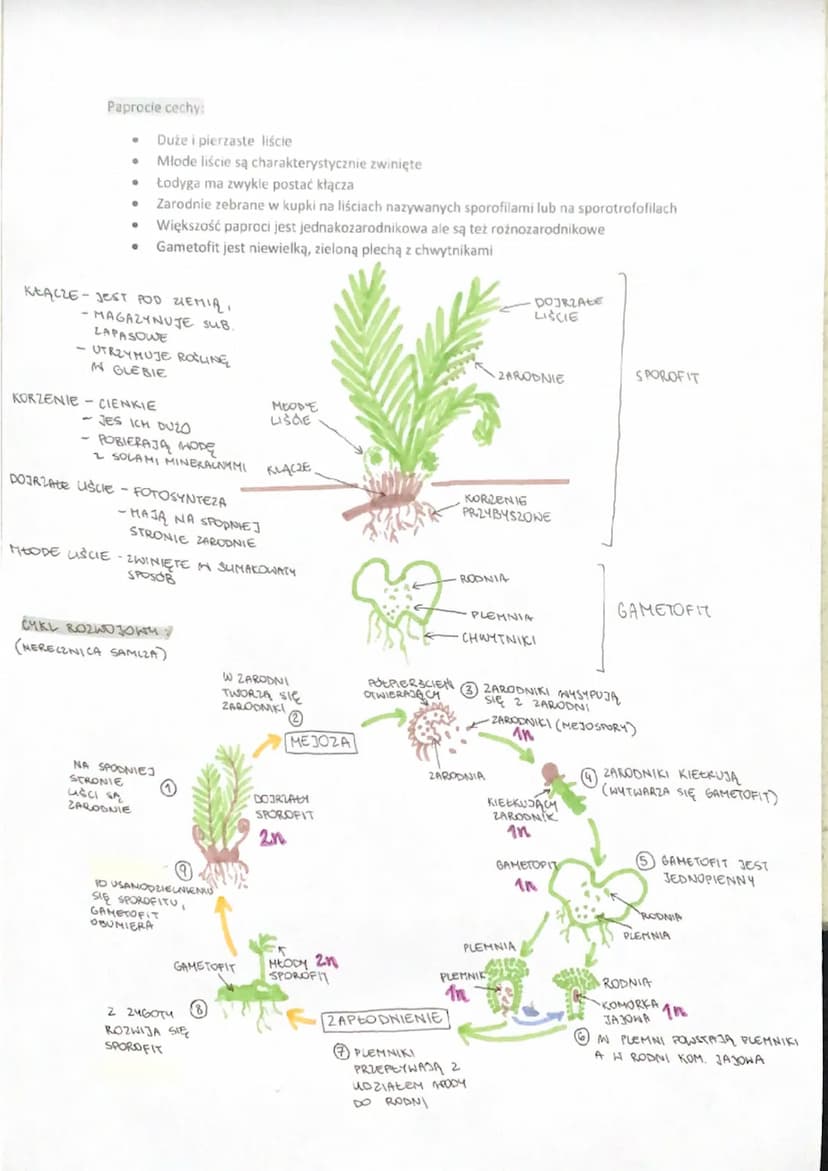 Paprocie cechy:
• Duże i pierzaste liście
• Młode liście są charakterystycznie zwinięte
• Łodyga ma zwykle postać kłącza
• Zarodnie zebrane w kupki na liściach nazywanych sporofilami lub na sporotrofofilach
• Większość paproci jest jednakozarodnikowa ale są też rożnozarodnikowe
• Gametofit jest niewielką, zieloną plechą z chwytnikami
KŁĄCZE - JEST POD ZIEMIĄ,
- MAGAZYNUJE SUB.
ZAPASOWE
- UTRZYMUJE ROŚLINĘ
W GLEBIE
KORZENIE - CIENKIE
- JES ICH DUŻO
- POBIERAJĄ WODĘ
Z SOLAMI MINERALNYMI
DOJRZAŁE LIŚCIE - FOTOSYNTEZA
- MAJĄ NA SPODNIEJ
STRONIE ZARODNIE
MŁODE LIŚCIE - ZWINIĘTE W ŚLIMAKOWATY
SPOSÓB
DOJRZAŁE
LIŚCIE
ZARODNIE
MŁODE
LIŚCIE
KŁĄCZE
KORZENIE
PRZYBYSZOWE
SPOROFIT
RODNIA
PLEMNIA
CHWYTNIKI
GAMETOFIT
CYKL ROZWOJOWY:
(NERECZNICA SAMCZA)
W ZARODNI
TWORZĄ SIĘ
ZARODNIKI
②
MEJOZA
PÓŁPIERŚCIEŃ
OTWIERAJĄCY
③ ZARODNIKI WYSYPUJĄ
SIĘ Z ZARODNI
ZARODNIKI (MEJOSPORY)
1n
ZARODNIA
④ ZARODNIKI KIEŁKUJĄ
(WYTWARZA SIĘ GAMETOFIT)
KIEŁKUJĄCY
ZARODNIK
1n
NA SPODNIEJ
STRONIE
LIŚCI SĄ
ZARODNIE
①
DOJRZAŁY
SPOROFIT
2n
GAMETOFIT
1n
⑤ GAMETOFIT JEST
JEDNOPIENNY
RODNIA
PLEMNIA
⑨
PO USAMODZIELNIENIU
SIĘ SPOROFITU,
GAMETOFIT
OBUMIERA
GAMETOFIT
MŁODY 2n
SPOROFIT
PLEMNIA
PLEMNIK
1n
RODNIA
KOMÓRKA
JAJOWA 1n
Z ZYGOTY ⑧
ROZWIJA SIĘ
SPOROFIT
ZAPŁODNIENIE
⑥ W PLEMNI POWSTAJĄ PLEMNIKI
A W RODNI KOM. JAJOWA
⑦ PLEMNIKI
PRZEPŁYWAJĄ Z
UDZIAŁEM WODY
DO RODNI